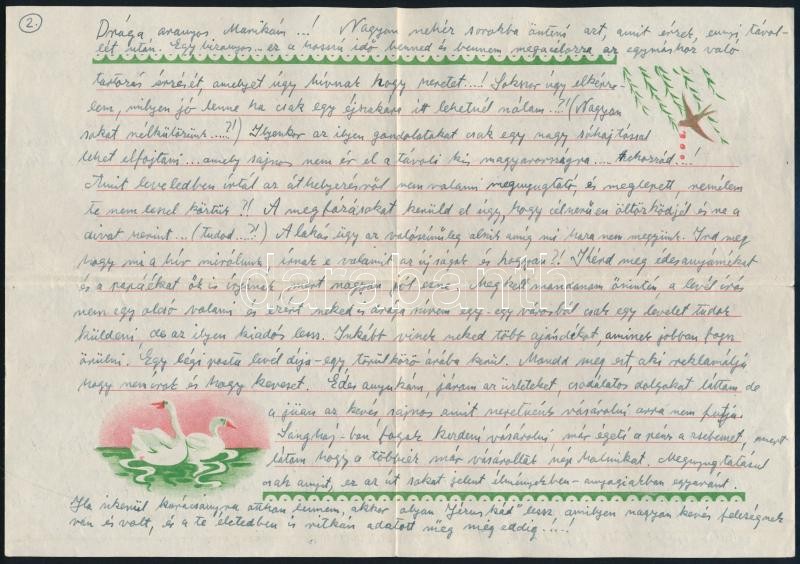 2.
Drága aranyos Marikám...! Nagyon nehéz sorokba önteni azt, amit érzek, ennyi távol-
lét után. Egy bizonyos... ez a hosszú idő benned és bennem megacélozza az egymáshoz való
tartozás érzését, amelyet úgy hívnak hogy szeretet....! Sokszor úgy elképze-
lem, milyen jó lenne ha csak egy éjszakára itt lehetnél nálam...?! (Nagyon
sokat nélkülözünk....?!) Ilyenkor az ilyen gondolatokat csak egy nagy sóhajtással
lehet elfojtani... amely sajnos nem ér el a távoli kis magyarországra.... Szekszárd...!
Amit leveledben írtál az áthelyezésről nem valami megnyugtató és meglepett, remélem
te nem leszel köztük?! A megfázásokat kerüld el úgy, hogy célszerűen öltözködjél és ne a
divat szerint...(tudod....?!) A lakás ügy az valószínűleg alszik amíg mi haza nem megyünk. Írd meg
hogy mi a hír mirólunk írnak e valamit az újságok és hogyan?! Kérd meg édesanyámékat
és a papáékat ők is írjanak mert nagyon jól esne. Meg kell mondanom őszintén a levél írás
nem egy olcsó valami és ezért neked is drága szívem egy-egy városból csak egy levelet tudok
küldeni, de az ilyen kiadós lesz. Inkább viszek neked több ajándékot, aminek jobban fogsz
örülni. Egy légi posta levél díja - egy törülköző árába kerül. Mondd meg ezt, aki reklamálja
hogy nem írok és hogy keveset. Édes anyukám, járom az üzleteket, csodálatos dolgokat láttam de
a jüan az kevés, sajnos amit szeretnénk vásárolni arra nem futja.
Sanghaj-ban fogok kezdeni vásárolni, már égeti a pénz a zsebemet, mert
látom hogy a többiek már vásároltak szép holmikat. Megnyugtatásul
csak annyit, ez az út sokat jelent élményekben - anyagiakban egyaránt.
Ha sikerül karácsonyra otthon lennem, akkor olyan "Jézuskád" lesz, amilyen nagyon kevés feleségnek
van és volt, és a te életedben is ritkán adatott meg még eddig!...!
darabanth